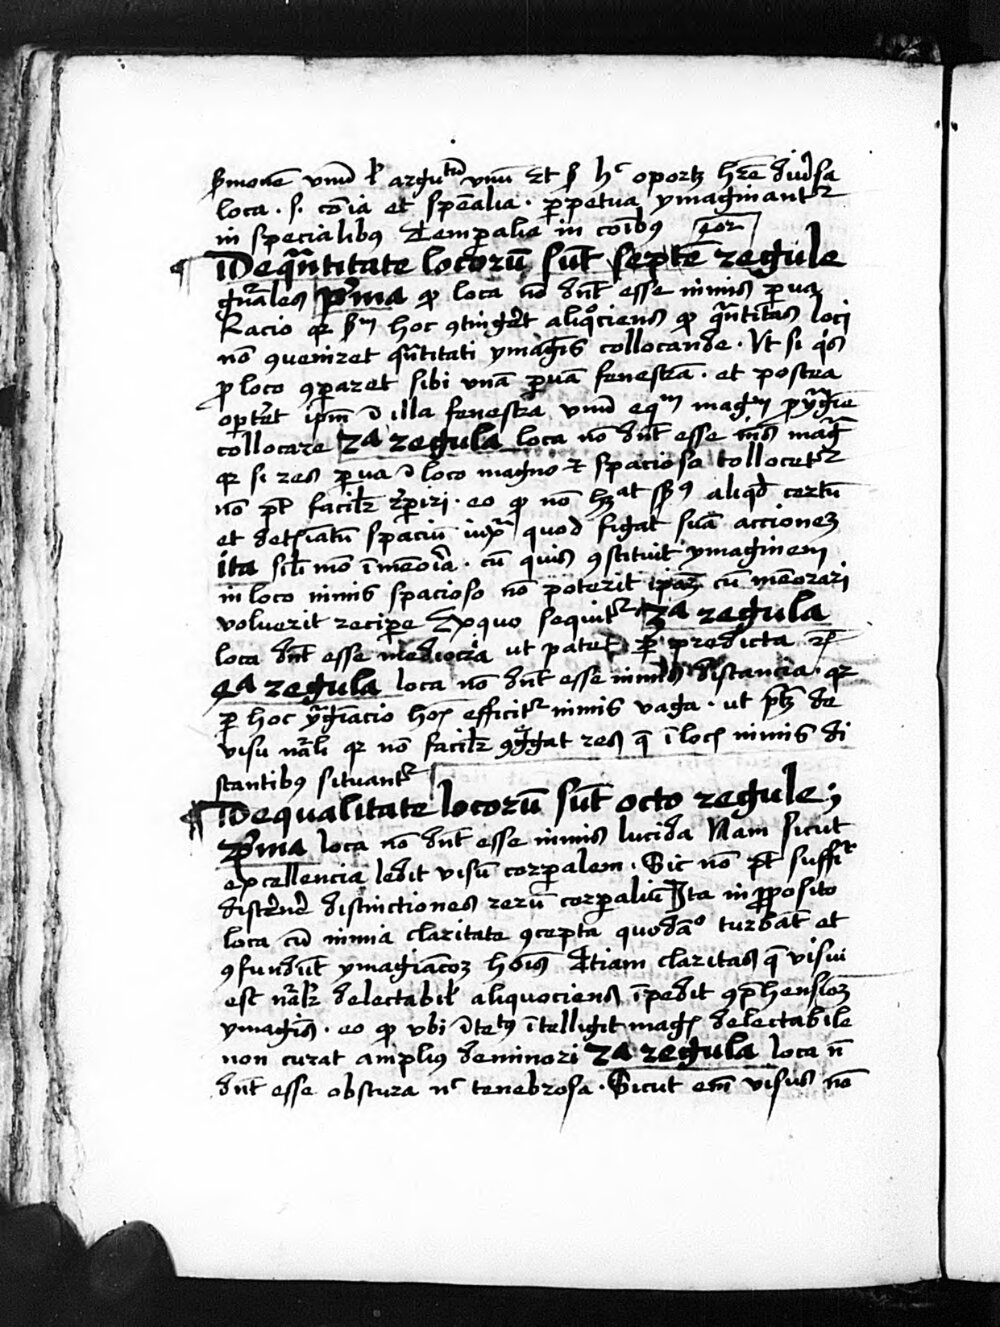 s̄monē vnū l' argu^tū vnū Et s̄ h^c oportꝫ h̄re diu'sa
loca · s. cōia et spēalia · ꝑpetua ymaginant^r
in specialibꝯ Temꝑalia in cōibꝯ
¶ De qͣntitate locoꝝ sūt septē regule
gn̄ales P^ima ꝙ loca nō dn̄t esse nimis ꝑua
Racio qꝛ hoc ꝯtinge't aliqͦciens ꝙ qͣntitas loci
nō ꝯueniret qͣntitati ymag̅is collocande · Vt si qͥs
ꝓ loco ꝯꝑaret sibi vnā ꝑuā fenestrā · et postea
op̄t'et ip̄m ī illa fenestra vnū eqͫ magͫ
collocare 2ª regula loca nō dn̄t esse nīs mag̅
qꝛ si res ꝑua ī loco magno et spacioso collocet^r
nō p̄t facil'r r̄ꝑiri · eo ꝙ nō aliqd̄ certū
et det'iatū spaciū iux^a quod figat suā accionē
ita sil'i mō ī memo^ia · cū quis ꝯstituit ymaginem
in loco nimis spacioso nō poterit ip̄aꝫ cū mēorari
voluerit recipe Ex quo sequit^r 3ª regula
loca dn̄t esse mediocria ut patet ꝑ predicta
4ª regula loca nō dn̄t esse nimis distancia · qꝛ
ꝑ hoc ymag̅iacio ho^is efficit^r nimis vaga · ut pꝫ de
visu nāl'i qꝛ nō facil'r ꝯg^egat res q̄ ī locis nimis di
stantibꝯ situant^r
¶ De qualitate locoꝝ sūt octo regule ;
P^ima loca nō dn̄t esse nimis lucida Nam sicut
excellencia ledit visū corꝑalem · Sic nō p̄t suffic̄
disc'ne' distinctiones rerū corꝑaliū Ita in ꝓposito
loca cū nimia claritate ꝯcepta quodāº turbāt et
ꝯfundūt ymagiācōꝫ hōis Etiam claritas q̄ visui
est nāl'r delectabil' aliquociens īpedit ꝯp̄hensiōꝫ
ymag̅is · eo ꝙ vbi īte^tꝯ ītelligit mag^s delectabile
non curat ampliꝯ de minori 2ª regula loca n̄
dn̄t esse obscura n^c tenebrosa · Sicut em̄ visus nō